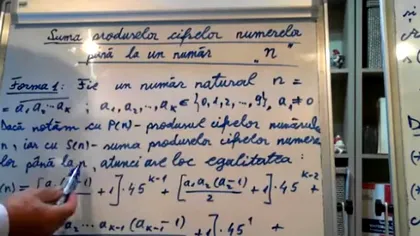 Suma produselor cifrelor numerelor
până la un număr „n"
Forma 1: Fie un număr natural n =
= a₁a₂...aₖ ; a₁, a₂, ..., aₖ ∈ {0,1,2,...,9}, a₁ ≠ 0
Dacă notăm cu P(n) - produsul cifrelor numărului
n, iar cu S(n) - suma produselor cifrelor numere
lor până la n, atunci are loc egalitatea:
(n) = [a₁ -1) + 1]·45ᵏ⁻¹ + [a₁a₂(a₂-1)/2 + 1]·45ᵏ⁻² +
a₂...aₖ₋₁(aₖ₋₁-1) + 1]·45¹ +